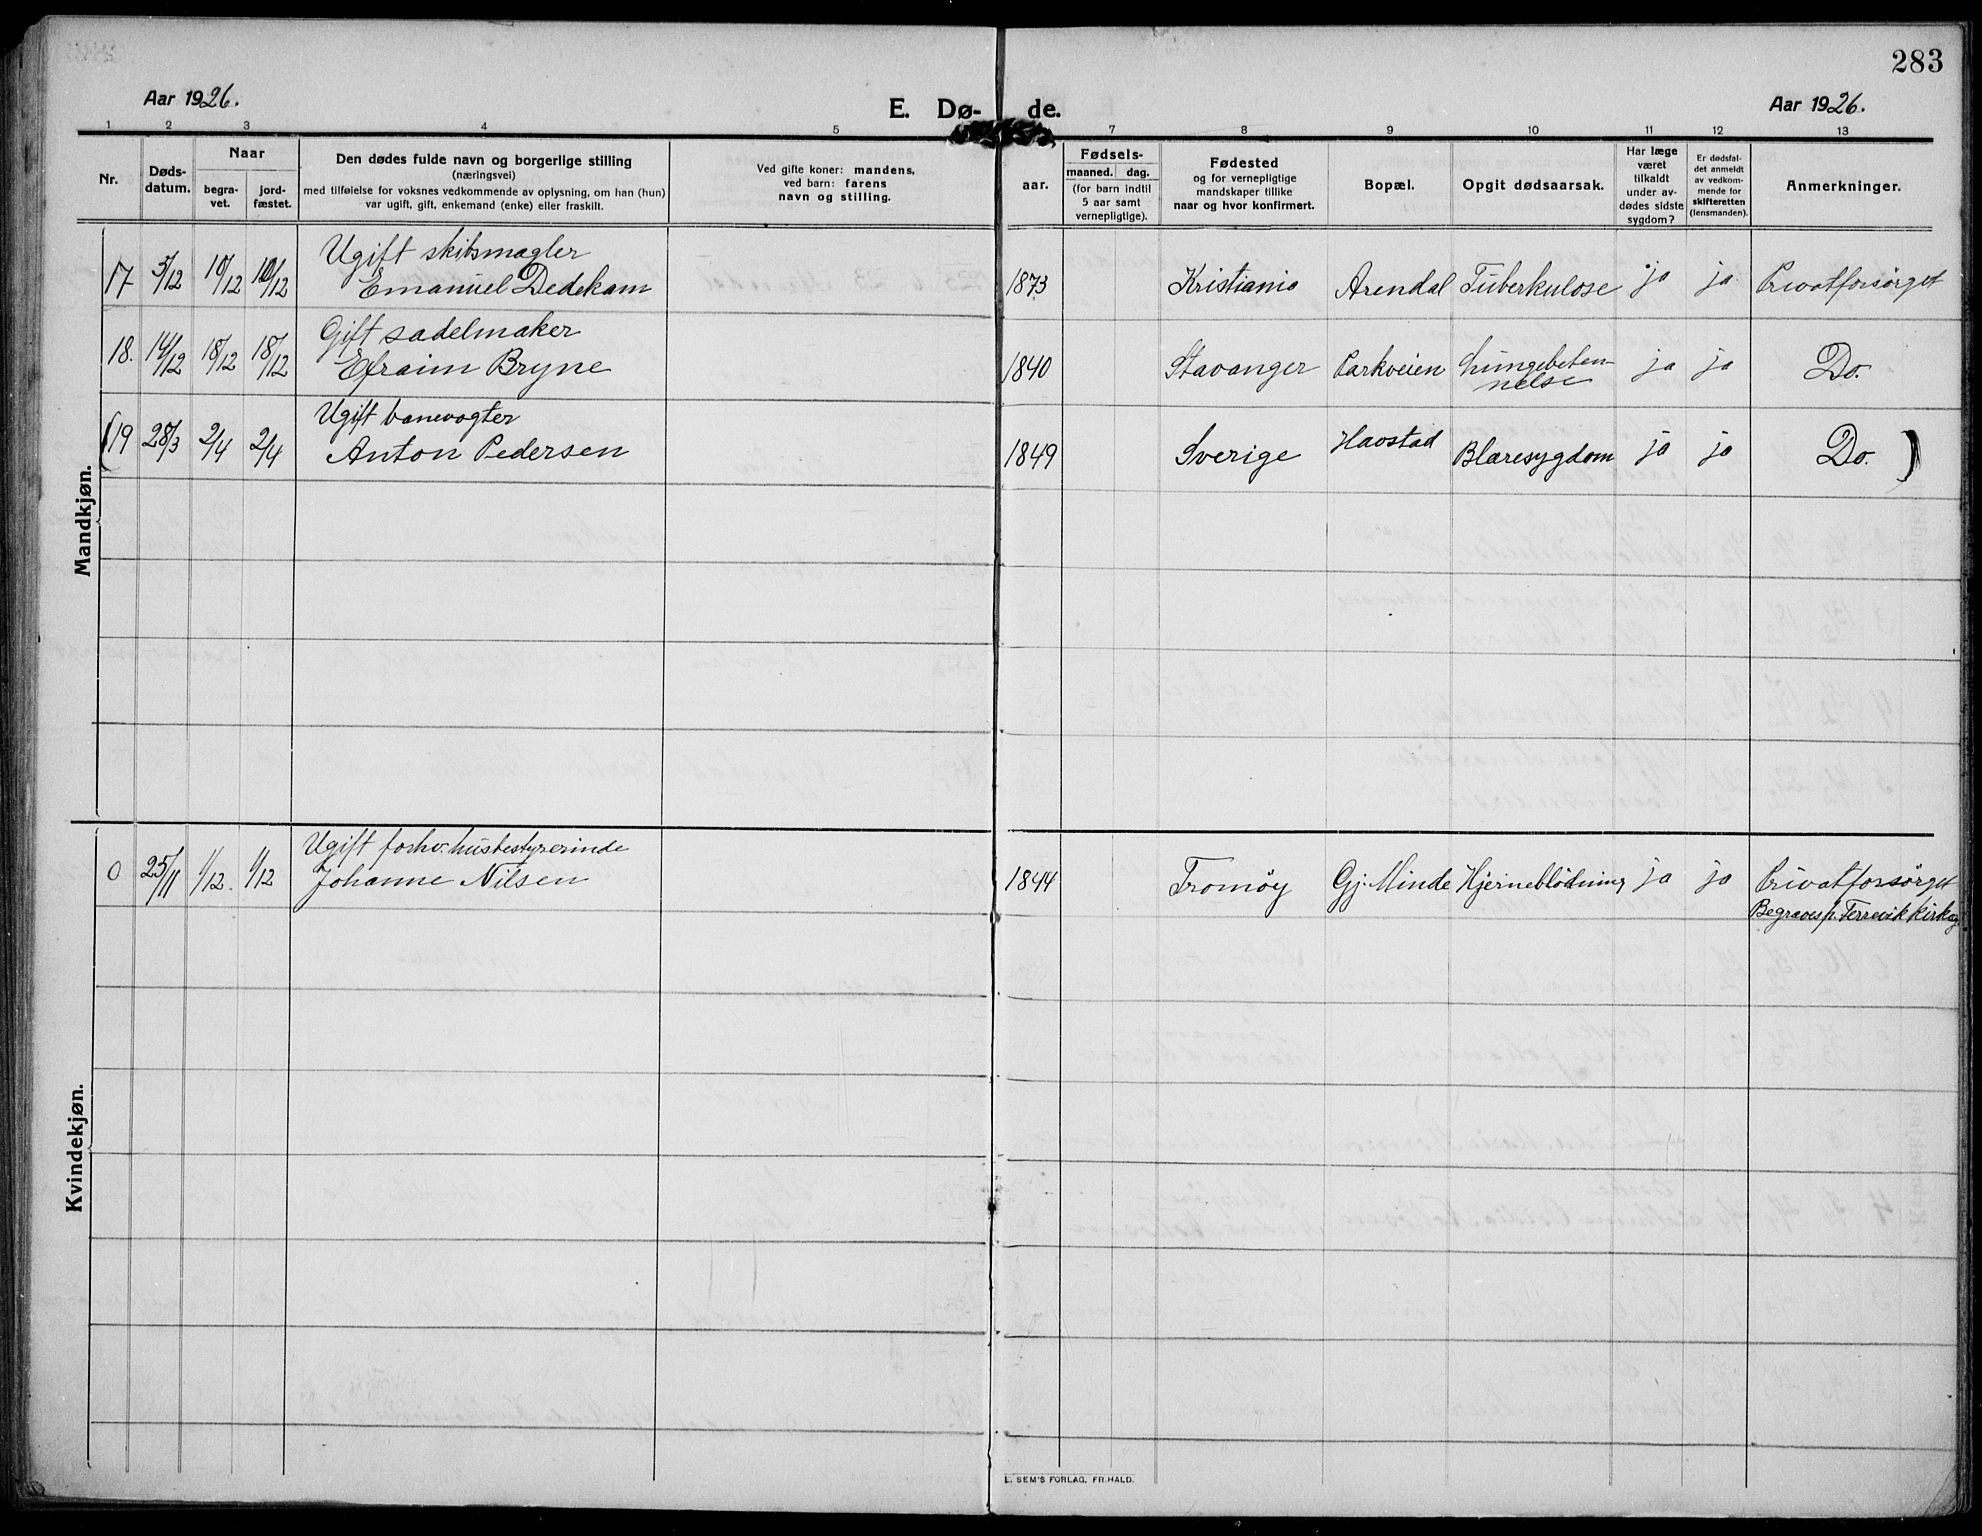 283
Aar 1926.
E. Dø- de.
Aar 1926.
1 2 3 4 5 7 8 9 10 11 12 13
Nr.
Døds-
datum.
Naar
begra-
vet.
jord-
fæstet.
Den dødes fulde navn og borgerlige stilling
(næringsvei)
med tilføielse for voksnes vedkommende av oplysning, om han (hun)
var ugift, gift, enkemand (enke) eller fraskilt.
Ved gifte koner: mandens,
ved barn: farens
navn og stilling.
aar.
Fødsels-
maaned. dag.
(for barn indtil
5 aar samt
vernepligtige).
Fødested
og for vernepligtige
mandskaper tillike
naar og hvor konfirmert.
Bopæl.
Opgit dødsaarsak.
Har læge
været
tilkaldt
under av-
dødes sidste
sygdom?
Er dødsfal-
det anmeldt
av vedkom-
mende for
skifteretten
(lensmanden).
Anmerkninger.
Mandkjøn.
Ugift skibsmægler
17 5/12 10/12 10/12 Emanuel Dedekam 1873 Kristiania Arendal Tuberkulose ja ja Privatforsørget
Gift sadelmaker
18. 14/12 18/12 18/12 Efraim Bryne 1840 Stavanger Parkveien Lungebeten-
nelse ja ja Do.
Ugift banevogter
(19 28/3 2/4 2/4 Anton Pedersen 1849 Sverige Havstad Blæresygdom ja ja Do. )
Kvindekjøn.
Ugift forhv. husbestyrerinde
0 25/11 1/12. 1/12 Johanne Nilsen 1844 Tromøy Gj. Minde Hjerneblødning ja ja Privatforsørget
Begraves p. Færvik kirkeg
L. SEM'S FORLAG, FR.HALD.